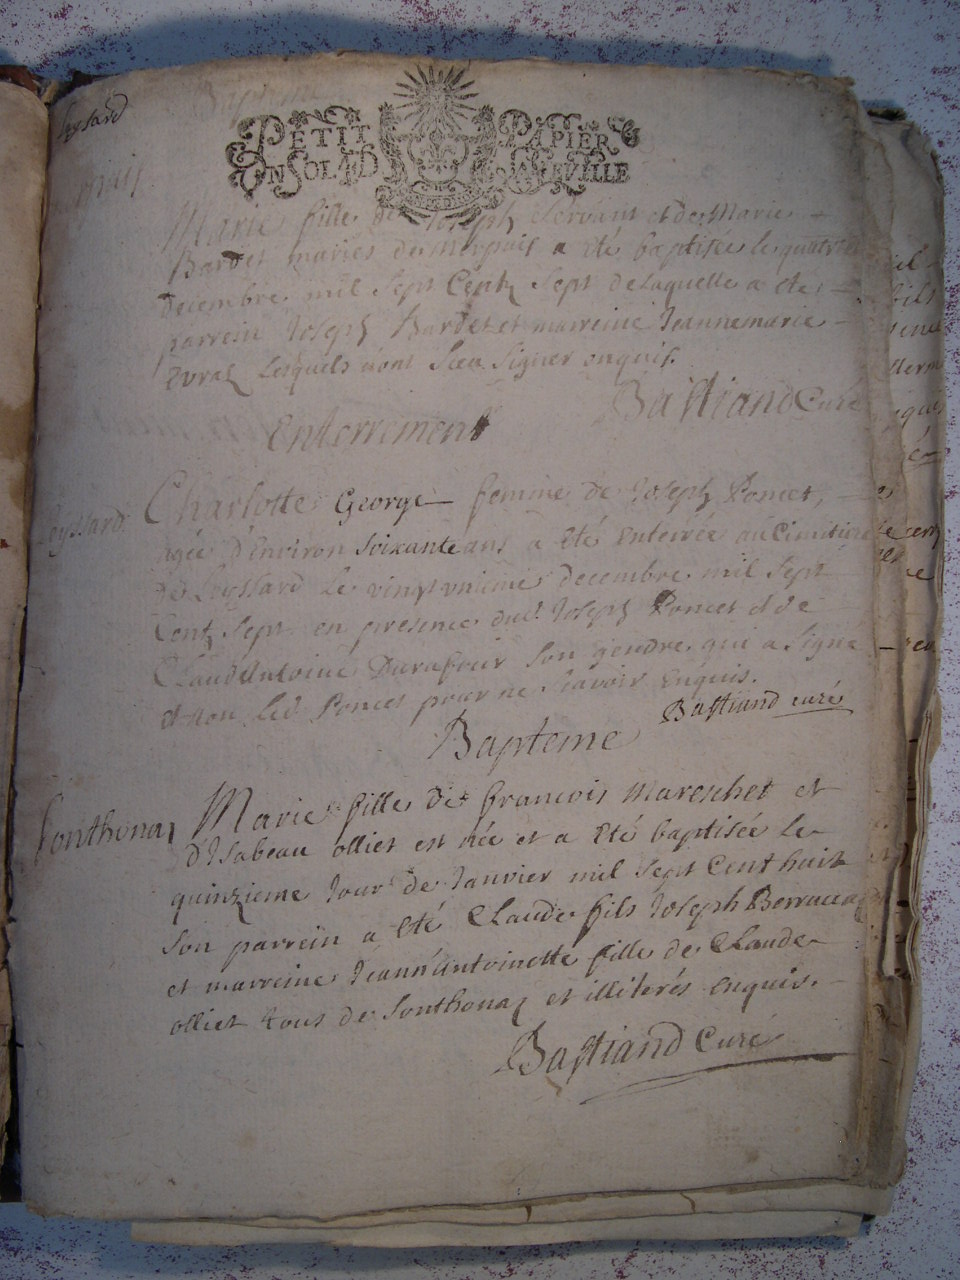 Leyssard
Bapteme
PETIT PAPIER
UN SOL 4 D LA FEVILLE
Marie fille de Joseph Servant et de Marie
Bardet mariés de Mespiaz a été baptisée le quatre
decembre mil sept Centz sept de laquelle a été
parrein Joseph Bardet et marreine Jeannemarie
Evraz lesquels n'ont sceu signer enquis.
Bastiand Curé
Enterrement
Leyssard
Charlotte George femme de Joseph Poncet,
agée d'environ soixante ans a été enterrée au Cimitiere
de Leyssard le vingt unieme decembre mil sept
Centz sept en presence dud. Joseph Poncet et de
Claud'Antoine Durafour son gendre qui a signé
et non led. Poncet pour ne sçavoir enquis.
Bastiand curé
Bapteme
Sonthonaz
Marie fille de francois Mareschet et
d'Isabeau olliet est née et a été baptisée le
quinzieme Jour de Janvier mil sept Cent huit
son parrein a été Claude fils Joseph
et marreine Jeann'antoinette fille de Claude
olliet tous de Sonthonaz et illiterés enquis.
Bastiand Curé